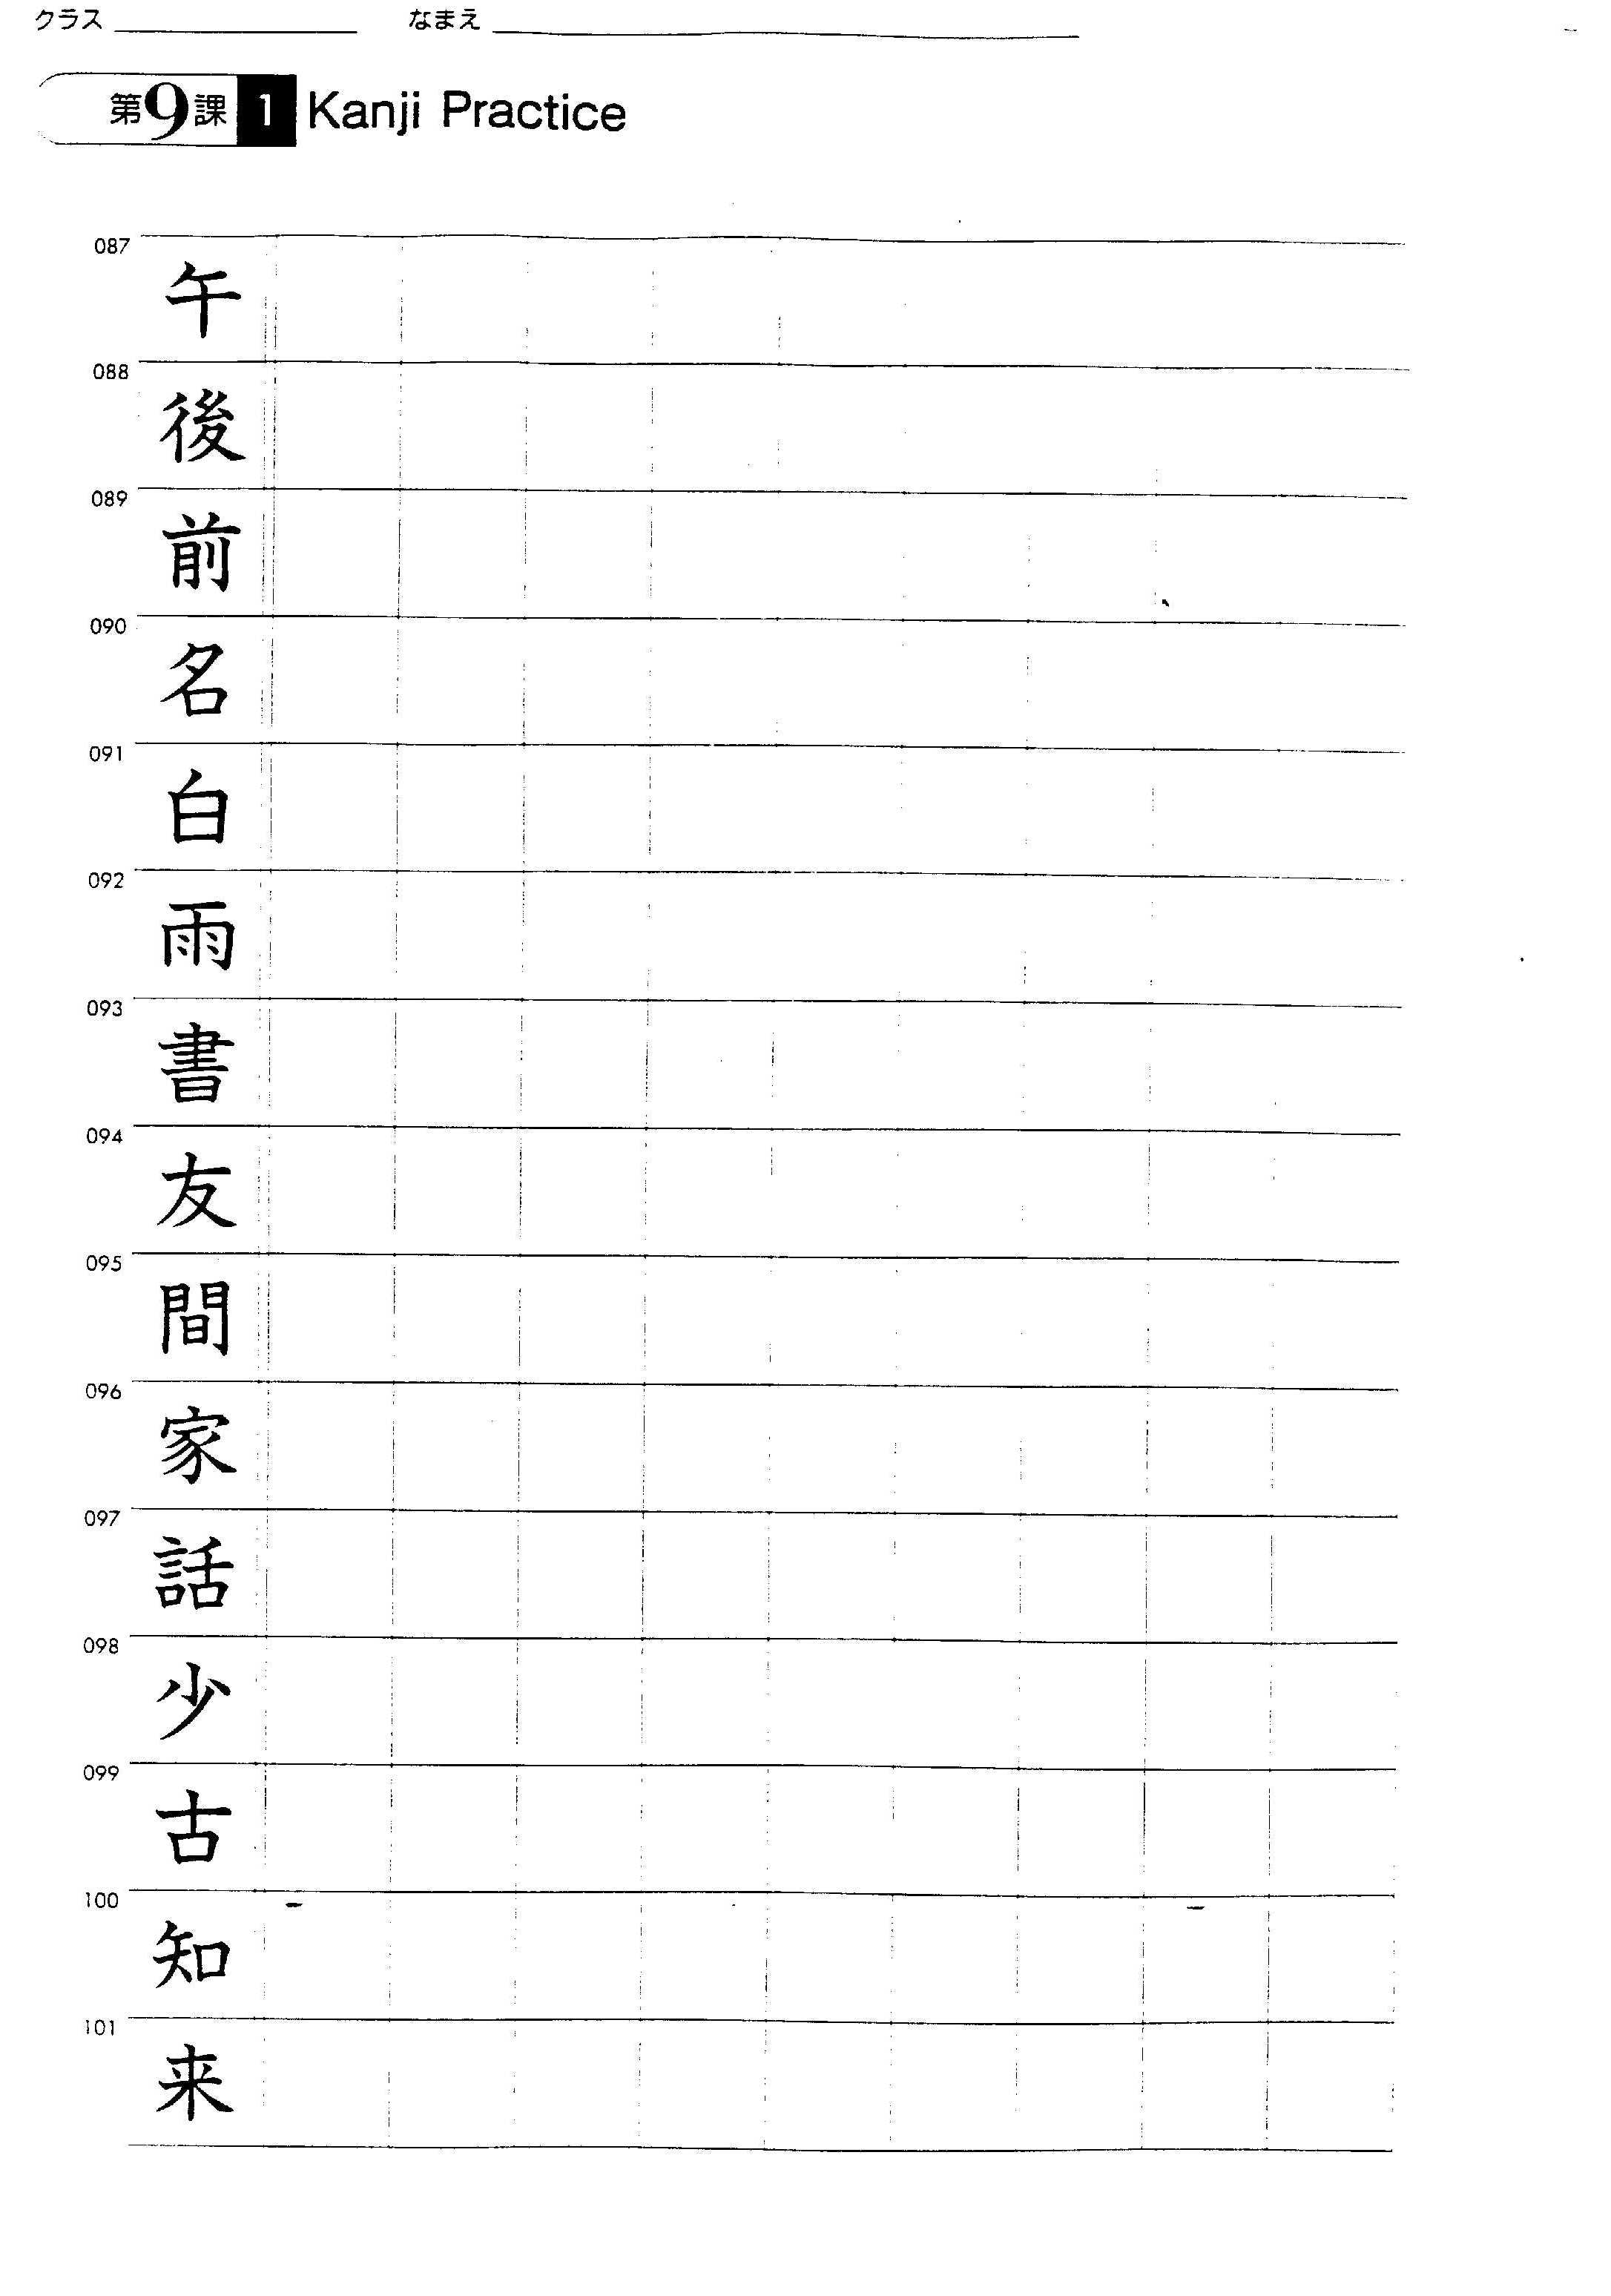 クラス なまえ
第9課 1 Kanji Practice
087
午
088
後
089
前
090
名
091
白
092
雨
093
書
094
友
095
間
096
家
097
話
098
少
099
古
100
知
101
来